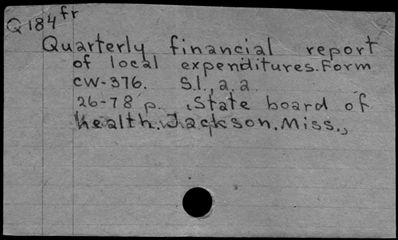 Q184fr
Quarterly financial report
of local expenditures. Form
CW-376. S.l., a. a.
26-78 p. State board of
health. Jackson. Miss.,